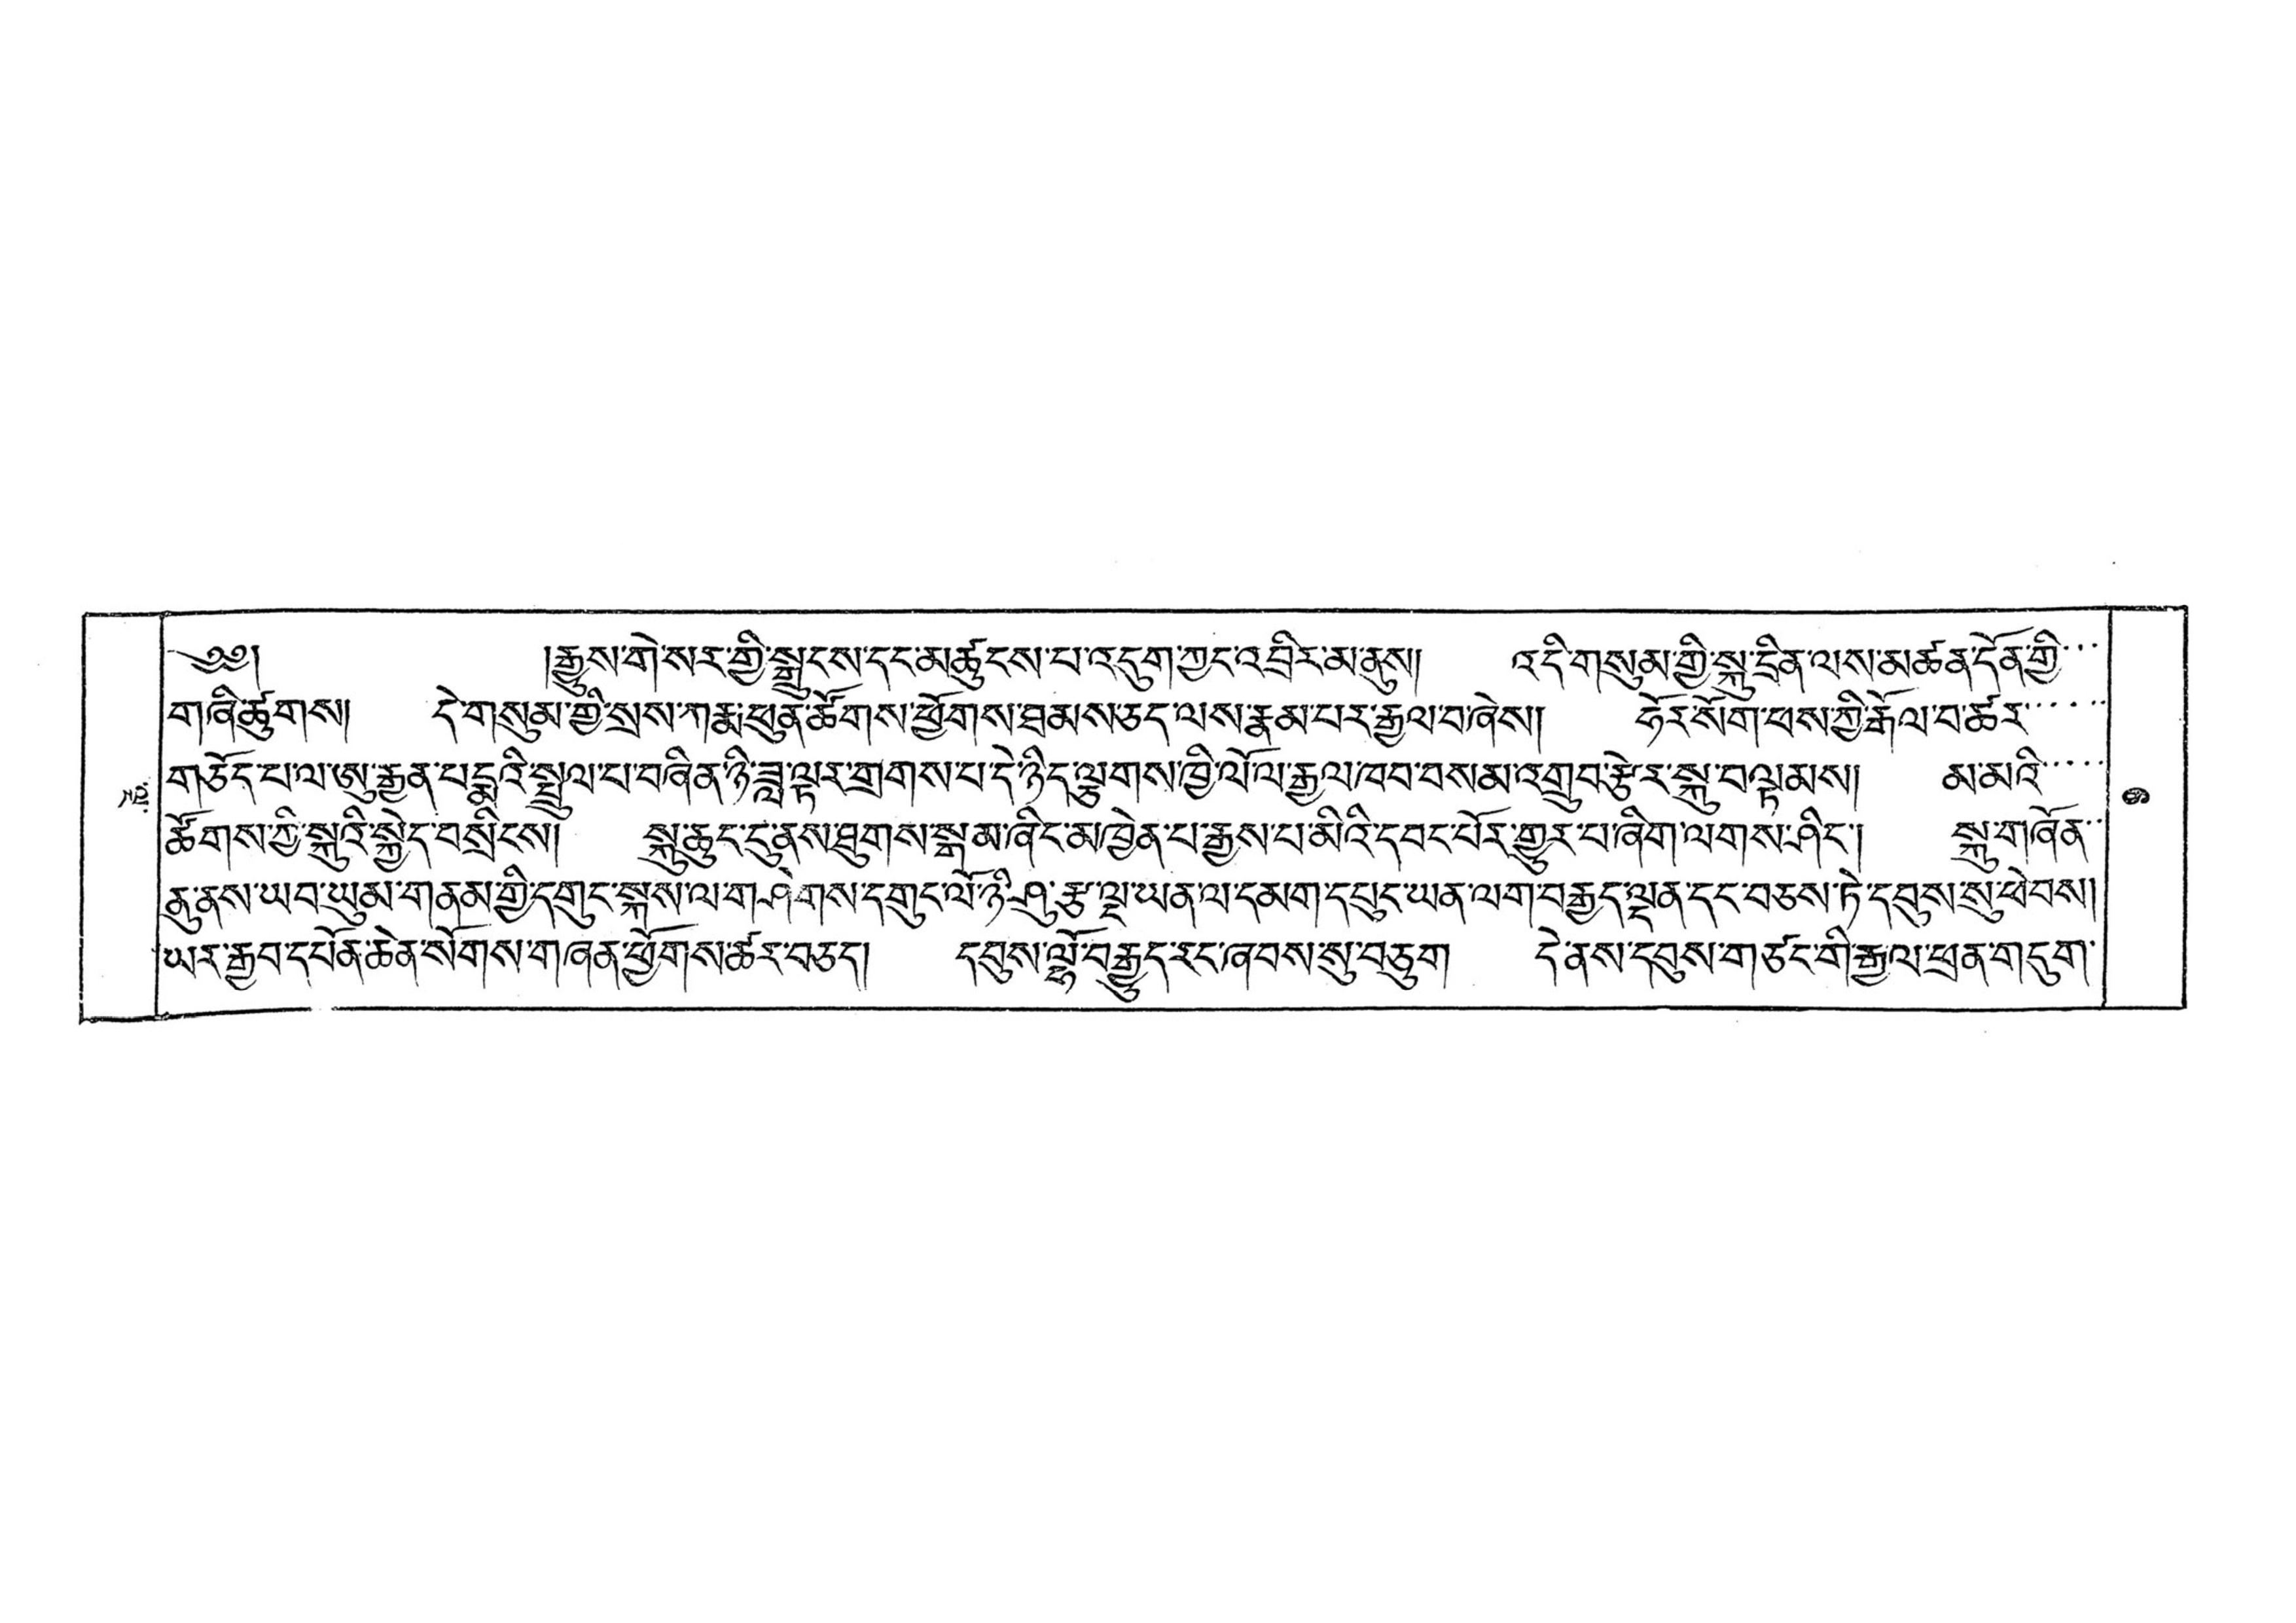 ༄༅། །རྒྱུས་གེ་སར་གྱི་སྒྲུངས་དང་མཚུངས་པ་འདུག་ཀྱང་འབྲིར་མ་ནུས། འདི་གསུམ་གྱི་སྐུ་དྲིན་ལས་མཚན་དོན་གྱི་
གཞི་ཚུགས། དེ་གསུམ་གྱི་སྲས་ཀརྨ་ཕུན་ཚོགས་ཕྱོགས་ཐམས་ཅད་ལས་རྣམ་པར་རྒྱལ་བ་ཞེས། ཧོར་སོག་ཕས་ཀྱི་རྒོལ་བ་ཚར་
གཅོད་པ་ལ་ཨུ་རྒྱན་པདྨའི་སྤྲུལ་པ་བཞིན་ཉི་ཟླ་ལྟར་གྲགས་པ་དེ་ཉིད་ལྕགས་ཁྱི་ལོ་ལ་རྒྱལ་ཁབ་བསམ་འགྲུབ་རྩེར་སྐུ་བལྟམས། མ་མའི་
ཚོགས་ཀྱི་སྐུའི་སྐྱེད་བསྲིངས། སྐུ་ཆུང་ངུ་ནས་ཐུགས་སྒམ་ཞིང་མཁྱེན་པ་རྒྱས་པ་མིའི་དབང་པོར་གྱུར་པ་ཞིག་ལགས་ཤིང་། སྐུ་གཞོན་
ནུ་ནས་ཡབ་ཡུམ་གནམ་གྱི་དགུང་སྐས་ལ་གཤེགས་དགུང་ལོ་ཉི་ཤུ་རྩ་ལྔ་ཡན་ལ་དམག་དཔུང་ཡན་ལག་བརྒྱད་ལྡན་དང་བཅས་ཏེ་དབུས་སུ་ཕེབས།
ཡར་རྒྱབ་དཔོན་ཆེན་སོགས་གཞན་ཕྱོགས་ཚར་བཅད། དབུས་ལྷོ་བརྒྱུད་རང་ཞབས་སུ་བཅུག དེ་ནས་དབུས་གཙང་གི་རྒྱལ་ཕྲན་གདུག་